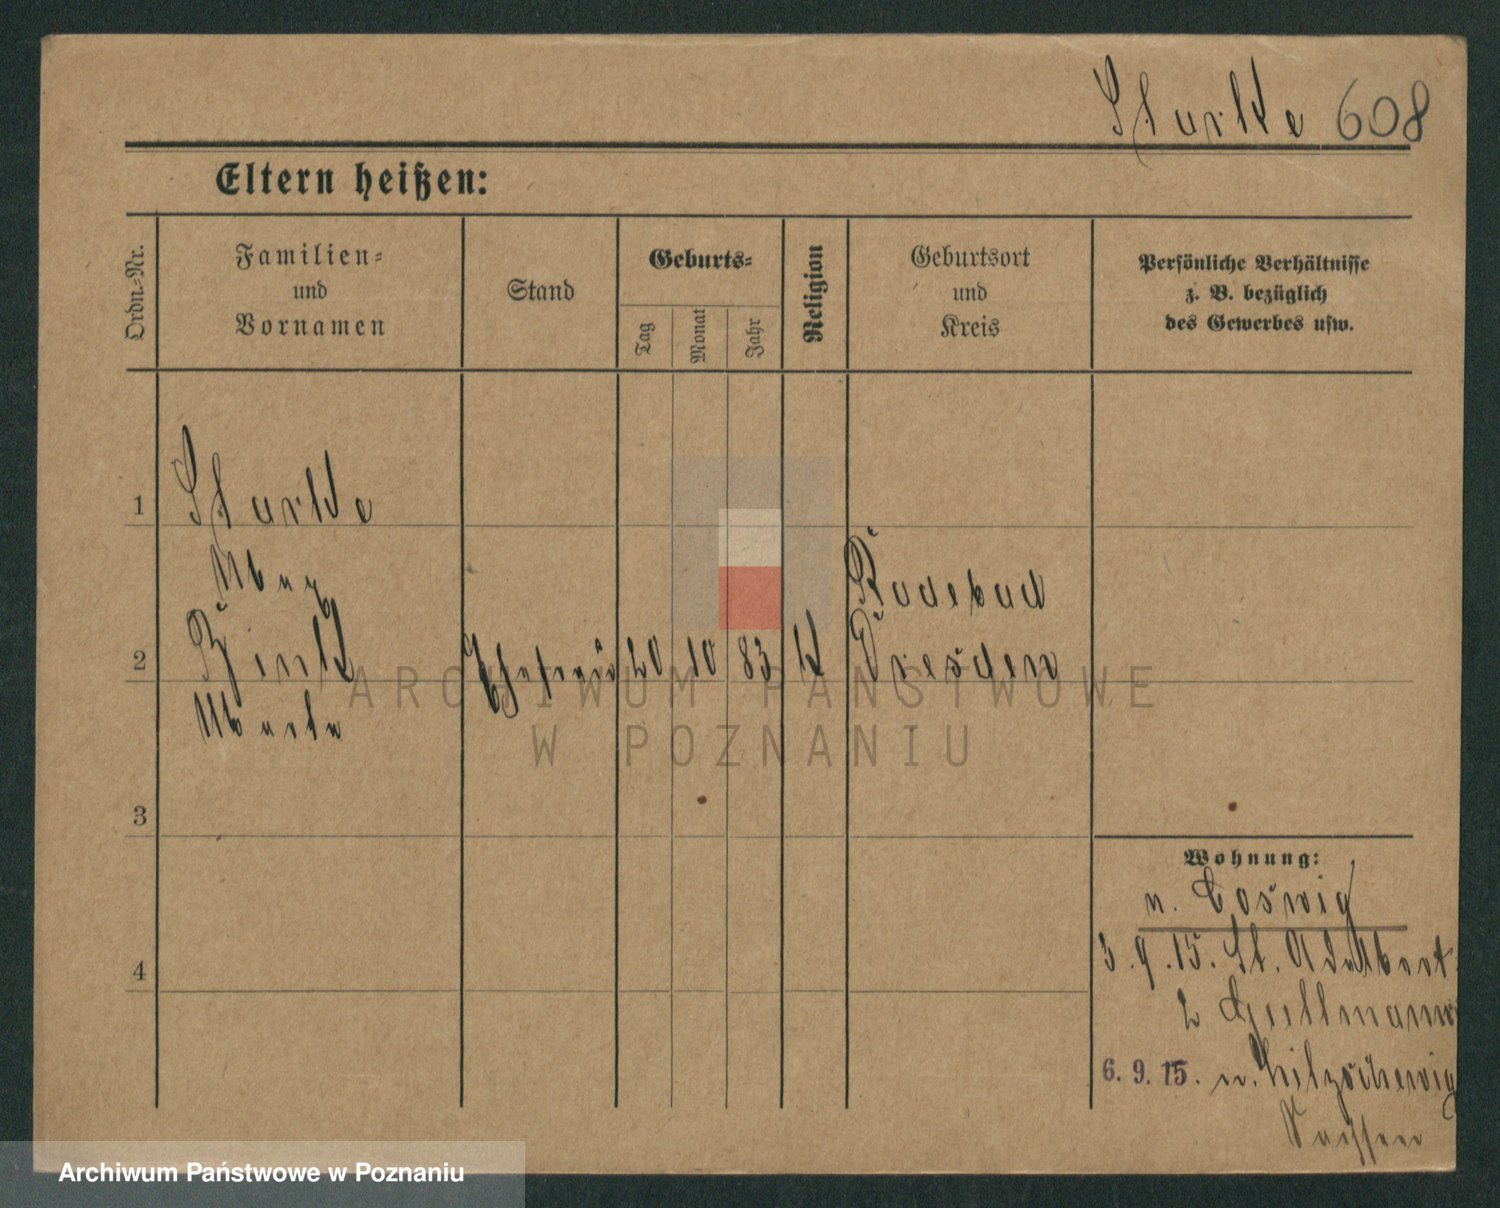 Starke 608
Eltern heißen:
Ordn.-Nr.
Familien-
und
Vornamen
Stand
Geburts-
Tag
Monat
Jahr
Religion
Geburtsort
und
Kreis
Persönliche Verhältnisse
z. B. bezüglich
des Gewerbes usw.
1
Starke
Max
2
Zink
Marta
Ehefrau
20
10
83
k
Radebeul
Dresden
3
4
Wohnung:
n. Coswig
3.9.15. St. Adalbert
2
6. 9. 15. n.
Sachsen
ARCHIWUM PAŃSTWOWE
W POZNANIU
Archiwum Państwowe w Poznaniu